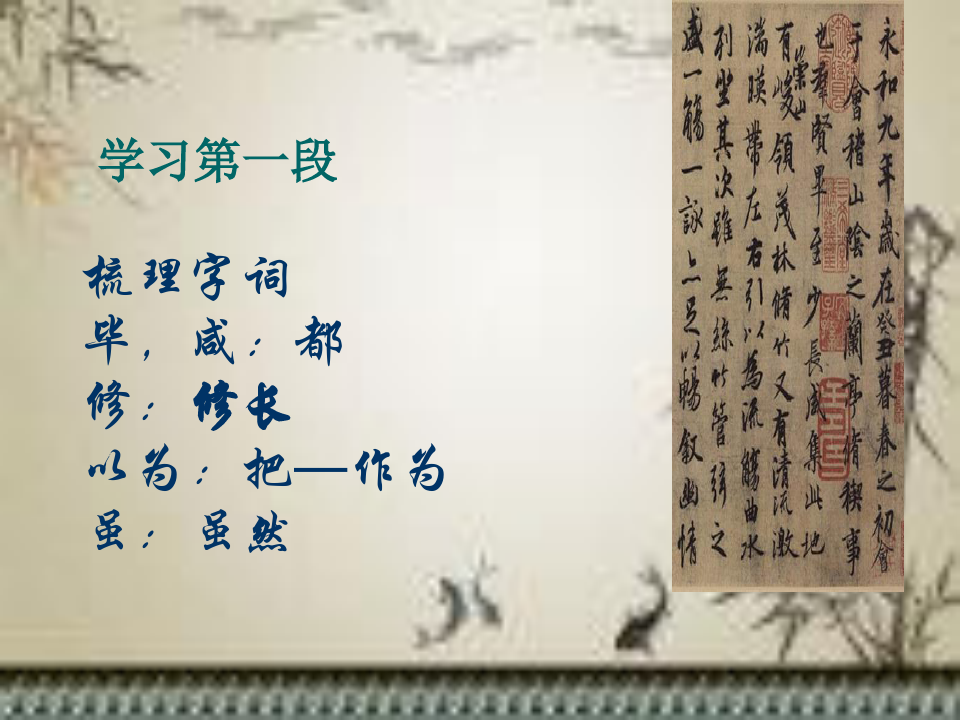 学习第一段
梳理字词
毕，咸：都
修：修长
以为：把—作为
虽：虽然
永和九年歲在癸丑暮春之初會
于會稽山陰之蘭亭脩稧事
也羣賢畢至少長咸集此地
有崇山峻領茂林脩竹又有清流激
湍暎帶左右引以為流觴曲水
列坐其次雖無絲竹管弦之
盛一觴一詠亦足以暢叙幽情